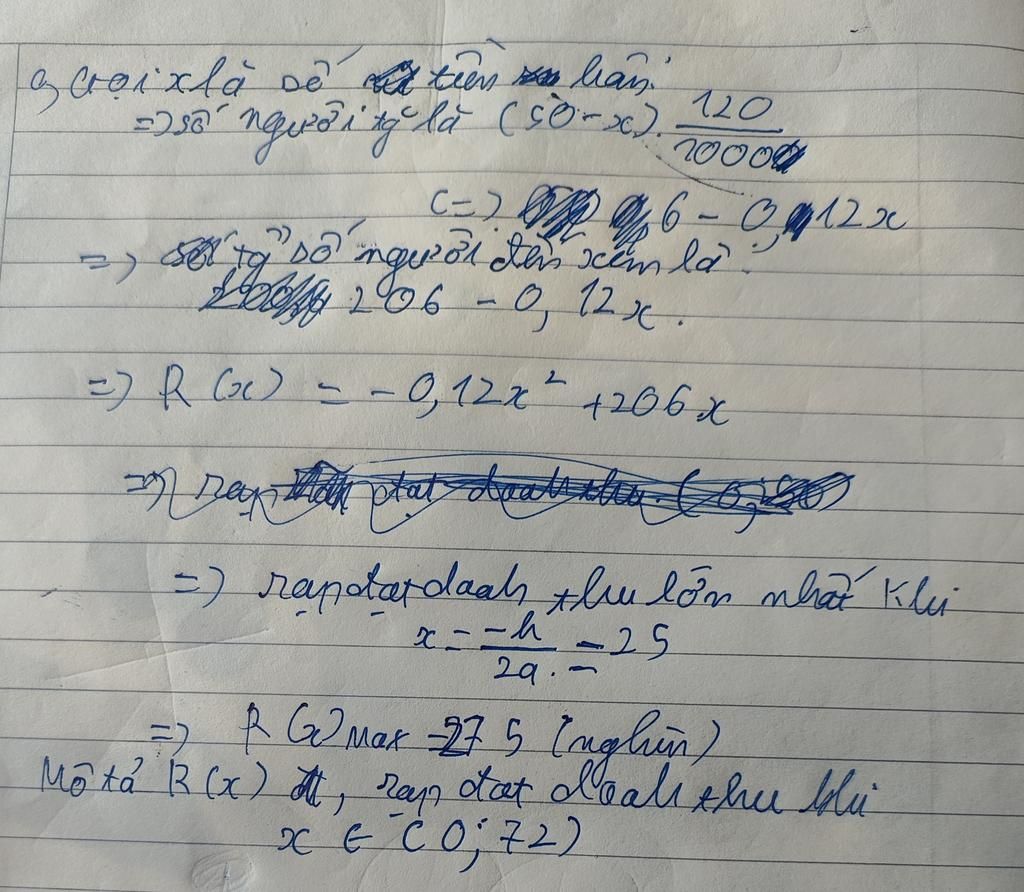 a, Gọi x là số tiền bán:
=> số người tg là (50 - x). 120/1000
<=> 6 - 0,12x
=> tg số người đến xem là:
206 - 0,12x.
=> R(x) = -0,12x² + 206x
=> rạp đạt doah thu (0;
=> rạp đạt doah thu lớn nhất khi
x = -b/2a. = 25
=> R(x) Max = 275 (nghìn)
Mô tả R(x), rạp đạt doah thu khi
x ∈ (0; 72)